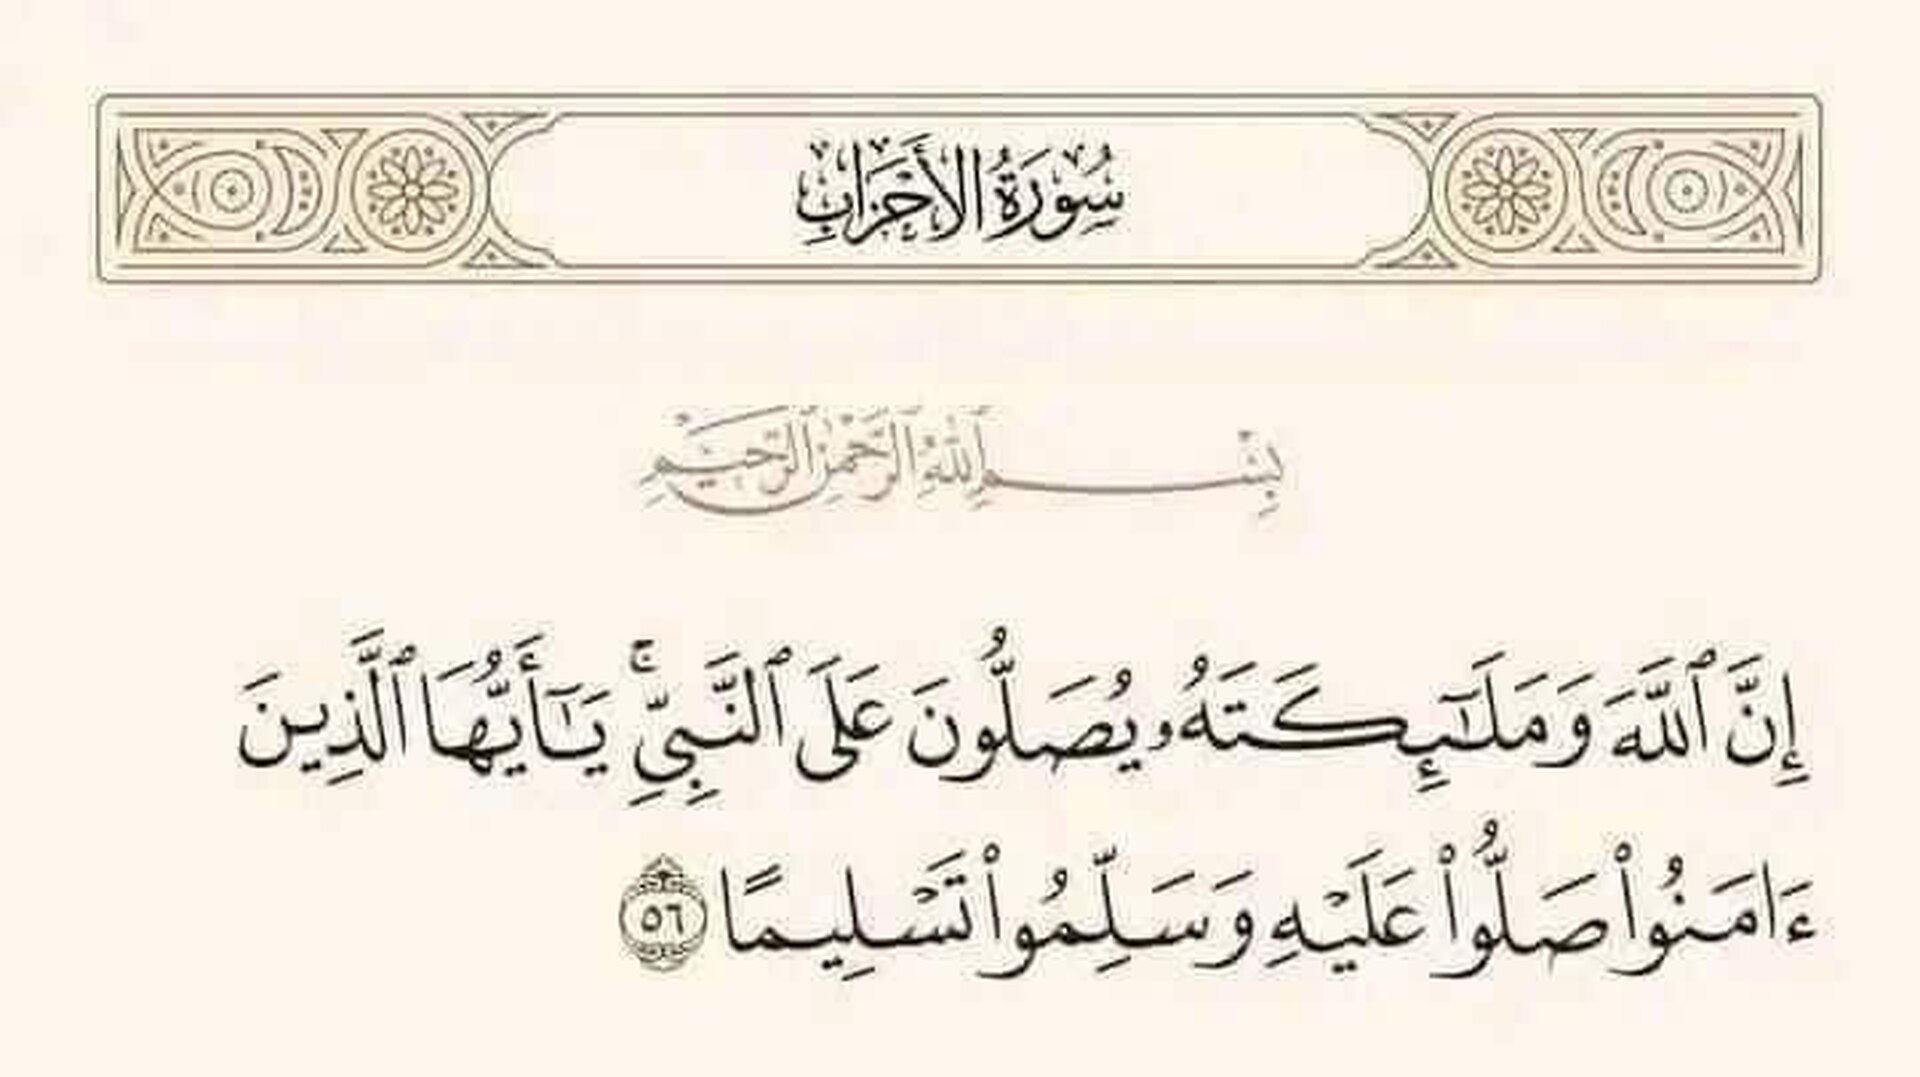 سُورَةُ الأَحْزَابِ
بِسْمِ اللَّهِ الرَّحْمَٰنِ الرَّحِيمِ
إِنَّ ٱللَّهَ وَمَلَـٰٓئِكَتَهُۥ يُصَلُّونَ عَلَى ٱلنَّبِيِّۚ يَـٰٓأَيُّهَا ٱلَّذِينَ
ءَامَنُوا۟ صَلُّوا۟ عَلَيْهِ وَسَلِّمُوا۟ تَسْلِيمًا ٥٦